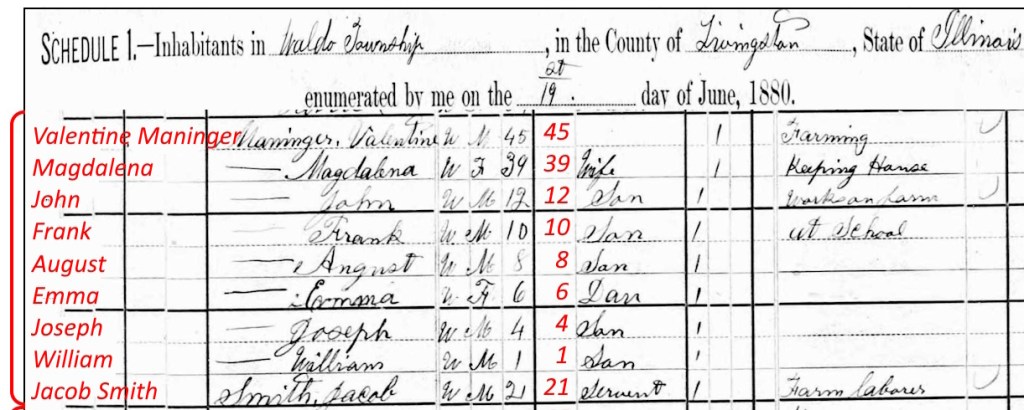 SCHEDULE 1.—Inhabitants in Waldo Township, in the County of Livingston, State of Illinois
enumerated by me on the 19. day of June, 1880.
Valentine Maninger Maninger, Valentine W M 45 45 1 Farming
Magdalena — Magdalena W F 39 39 Wife 1 Keeping House
John — John W M 12 12 Son 1 Work on farm
Frank — Frank W M 10 10 Son 1 at School
August — August W M 8 8 Son 1
Emma — Emma W F 6 6 Dau 1
Joseph — Joseph W M 4 4 Son 1
William — William W M 1 1 Son 1
Jacob Smith Smith, Jacob W M 21 21 Servent 1 Farm laborer